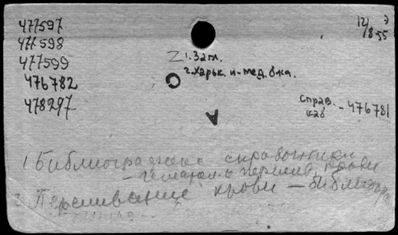 477597
477598
477599
476782
478297
12/8 55
Э
1.32л.
г. Харьк. н-мед. б-ка.
Справ. каб - 476781
1. Библиография справочники
гематол. и перелив. крови
2. Переливание крови – библиогр.